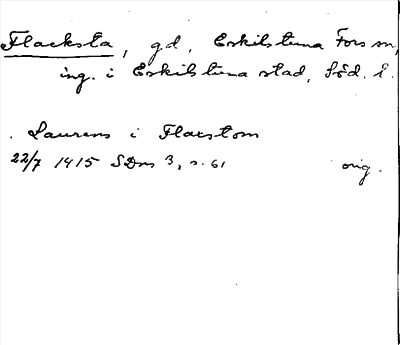 Flacksta, gd, Eskilstuna Fors sn,
ing. i Eskilstuna stad, Söd. l.
. Laurens i Flaestom
22/7 1415 SDns 3, s. 61 orig.